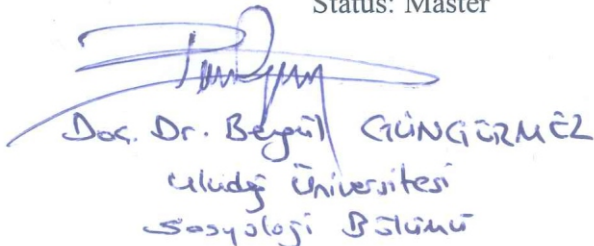 Status: Master
Doç. Dr. Bengül GÜNGÖRMEZ
Uludağ Üniversitesi
Sosyoloji Bölümü